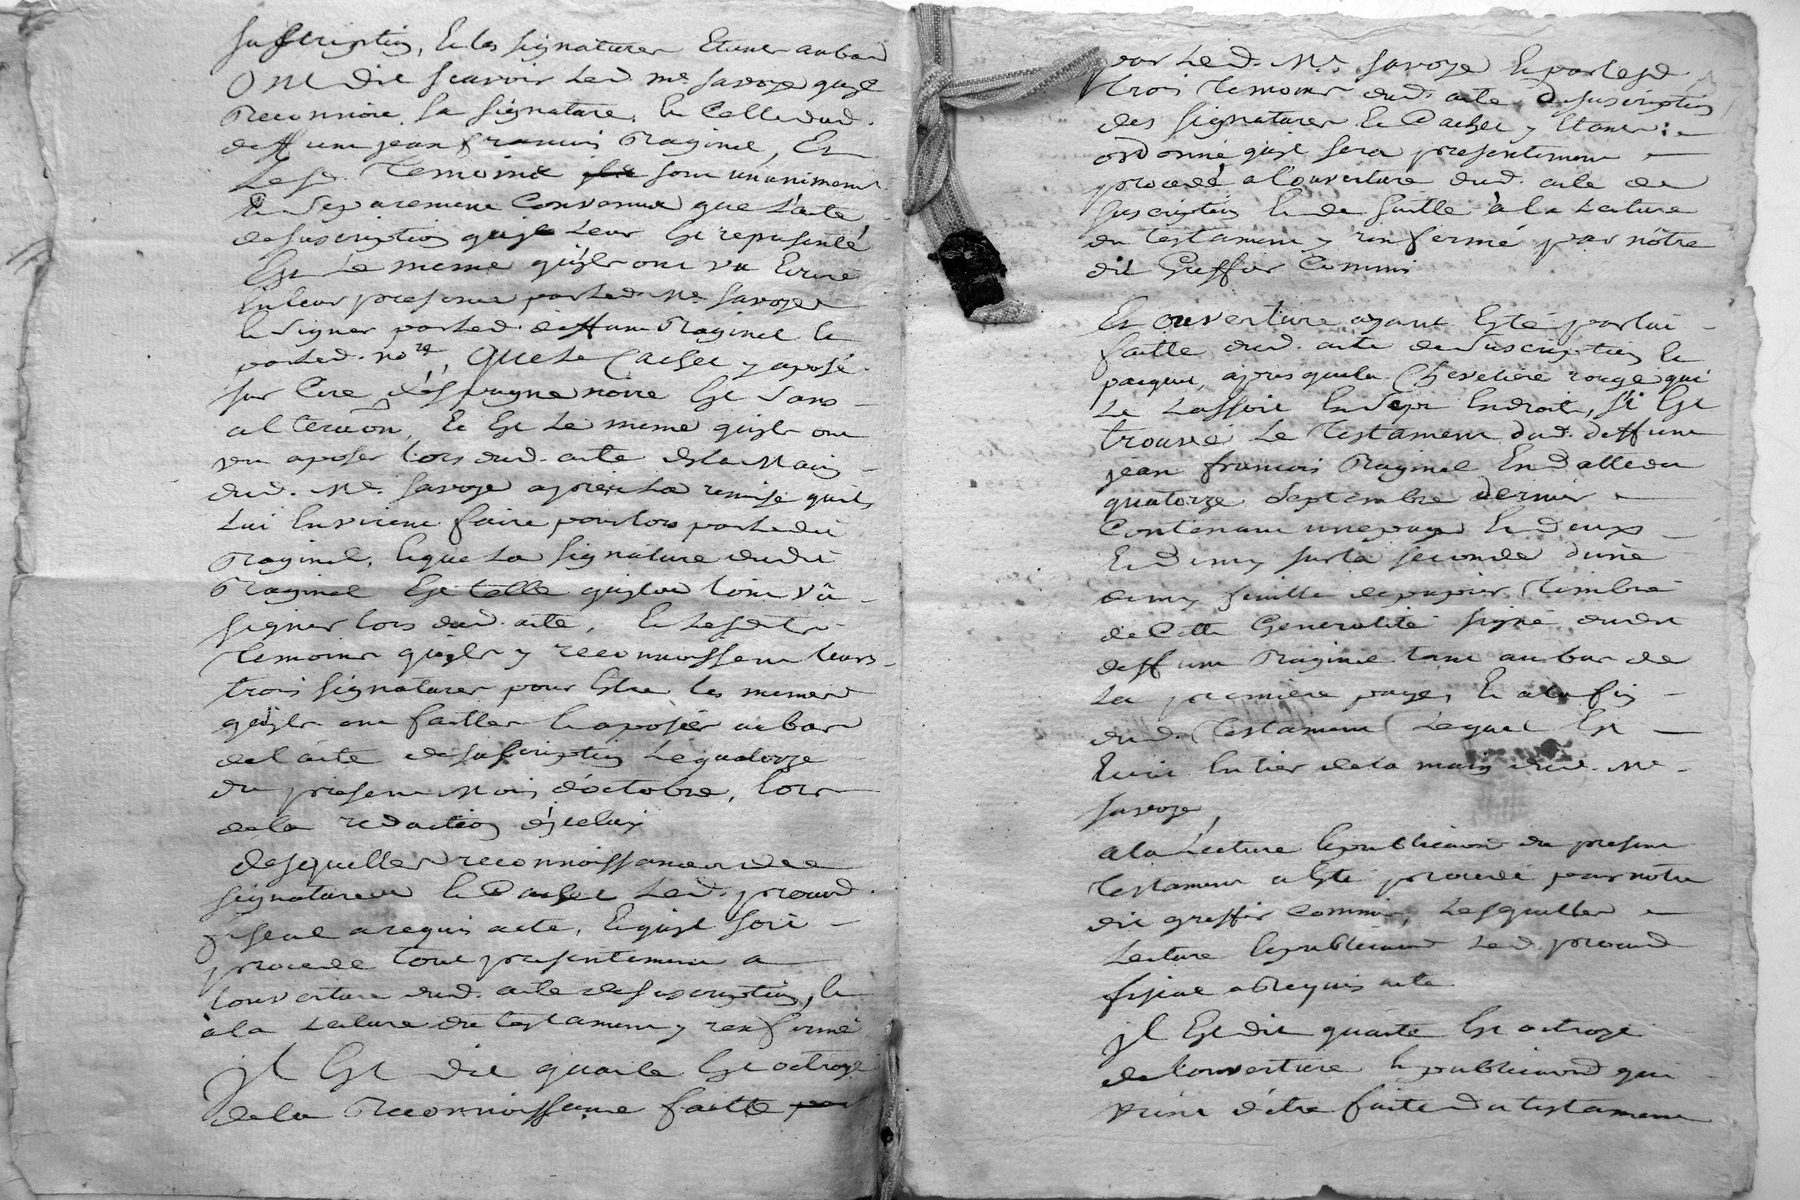 suscription, Et les signatures Etant au bas
Ont dit scavoir Led. me. Savoye quil
Reconnoie sa signature, Et Celle dud.
deffunt jean francois Raginel, Et
Lesd. Temoins sont unanimement
Et separement Convenus que L'acte
de suscription quil Leur Est representé
Est Le meme quils ont vu Ecrire
En leur presence par Led. Me. Savoye
Et signer par Led. deffunt Raginel Et
par Led. nore, Que Le Cachet y aposé
sur Cire d'Espagne noire Est sans
alteraôn, Et Est Le meme quils ont
vu aposer Lors dud. acte de la Main
dud. Me. Savoye apres La remise quils
Lui En virent faire pour lors par Ledit
Raginel, Et que La signature dudit
Raginel Est telle quils Lont vû
signer lors dud. acte, Et Lesdits
Temoins quils y reconnoissent Leurs
trois signatures pour Estre Les memes
quils ont faittes Et aposées au bas
de L'acte de suscription Le quatorze
du present Mois d'octobre, Lors
de la redaction d'jcelui
desquelles reconnoissances de
signatures Et Cachet Led. procur.
fiscal a requis acte, Et quil soit
procedé tout presentement a
Louverture dud. acte de suscription, Et
a la Lecture du testament y renfermé
jl Est dit quacte Est octroyé
de la Reconnoissance faitte
par Led. Me. Savoye Et par Lesd.
trois temoins dud. acte de suscription
des signatures Et Cachet y Etant :
ordonné quil sera presentement
procedé a l'ouverture dud. acte de
suscription Et de suitte à la Lecture
du testament y renfermé par nôtre
dit Greffier Commis
Et ouverture ayant Esté par lui
faitte dud. acte de suscription Et
paquet, apres que la Cheveliere rouge qui
Le Lassoit En sept Endroits, s'i Est
trouvé Le Testament dud. deffunt
jean francois Raginel En datte du
quatorze septembre dernier
Contenant une page Et deux
Et demy sur la seconde d'une
demy feuille de papier Timbré
de Cette Generalité signé dudit
deffunt Raginel tant au bas de
La premiere page, Et a la fin
dud. Testament Lequel Est
Ecrit Entier de la main dud. Me.
Savoye,
a la Lecture Et publicaôn du present
Testament a Esté procedé par nôtre
dit greffier Commis, desquelles
Lecture Et publicaôn Led. procur.
fiscal a Requis acte
jl Est dit quacte Est octroyé
de Louverture Et publicaôn qui
vient d'être faite du testament